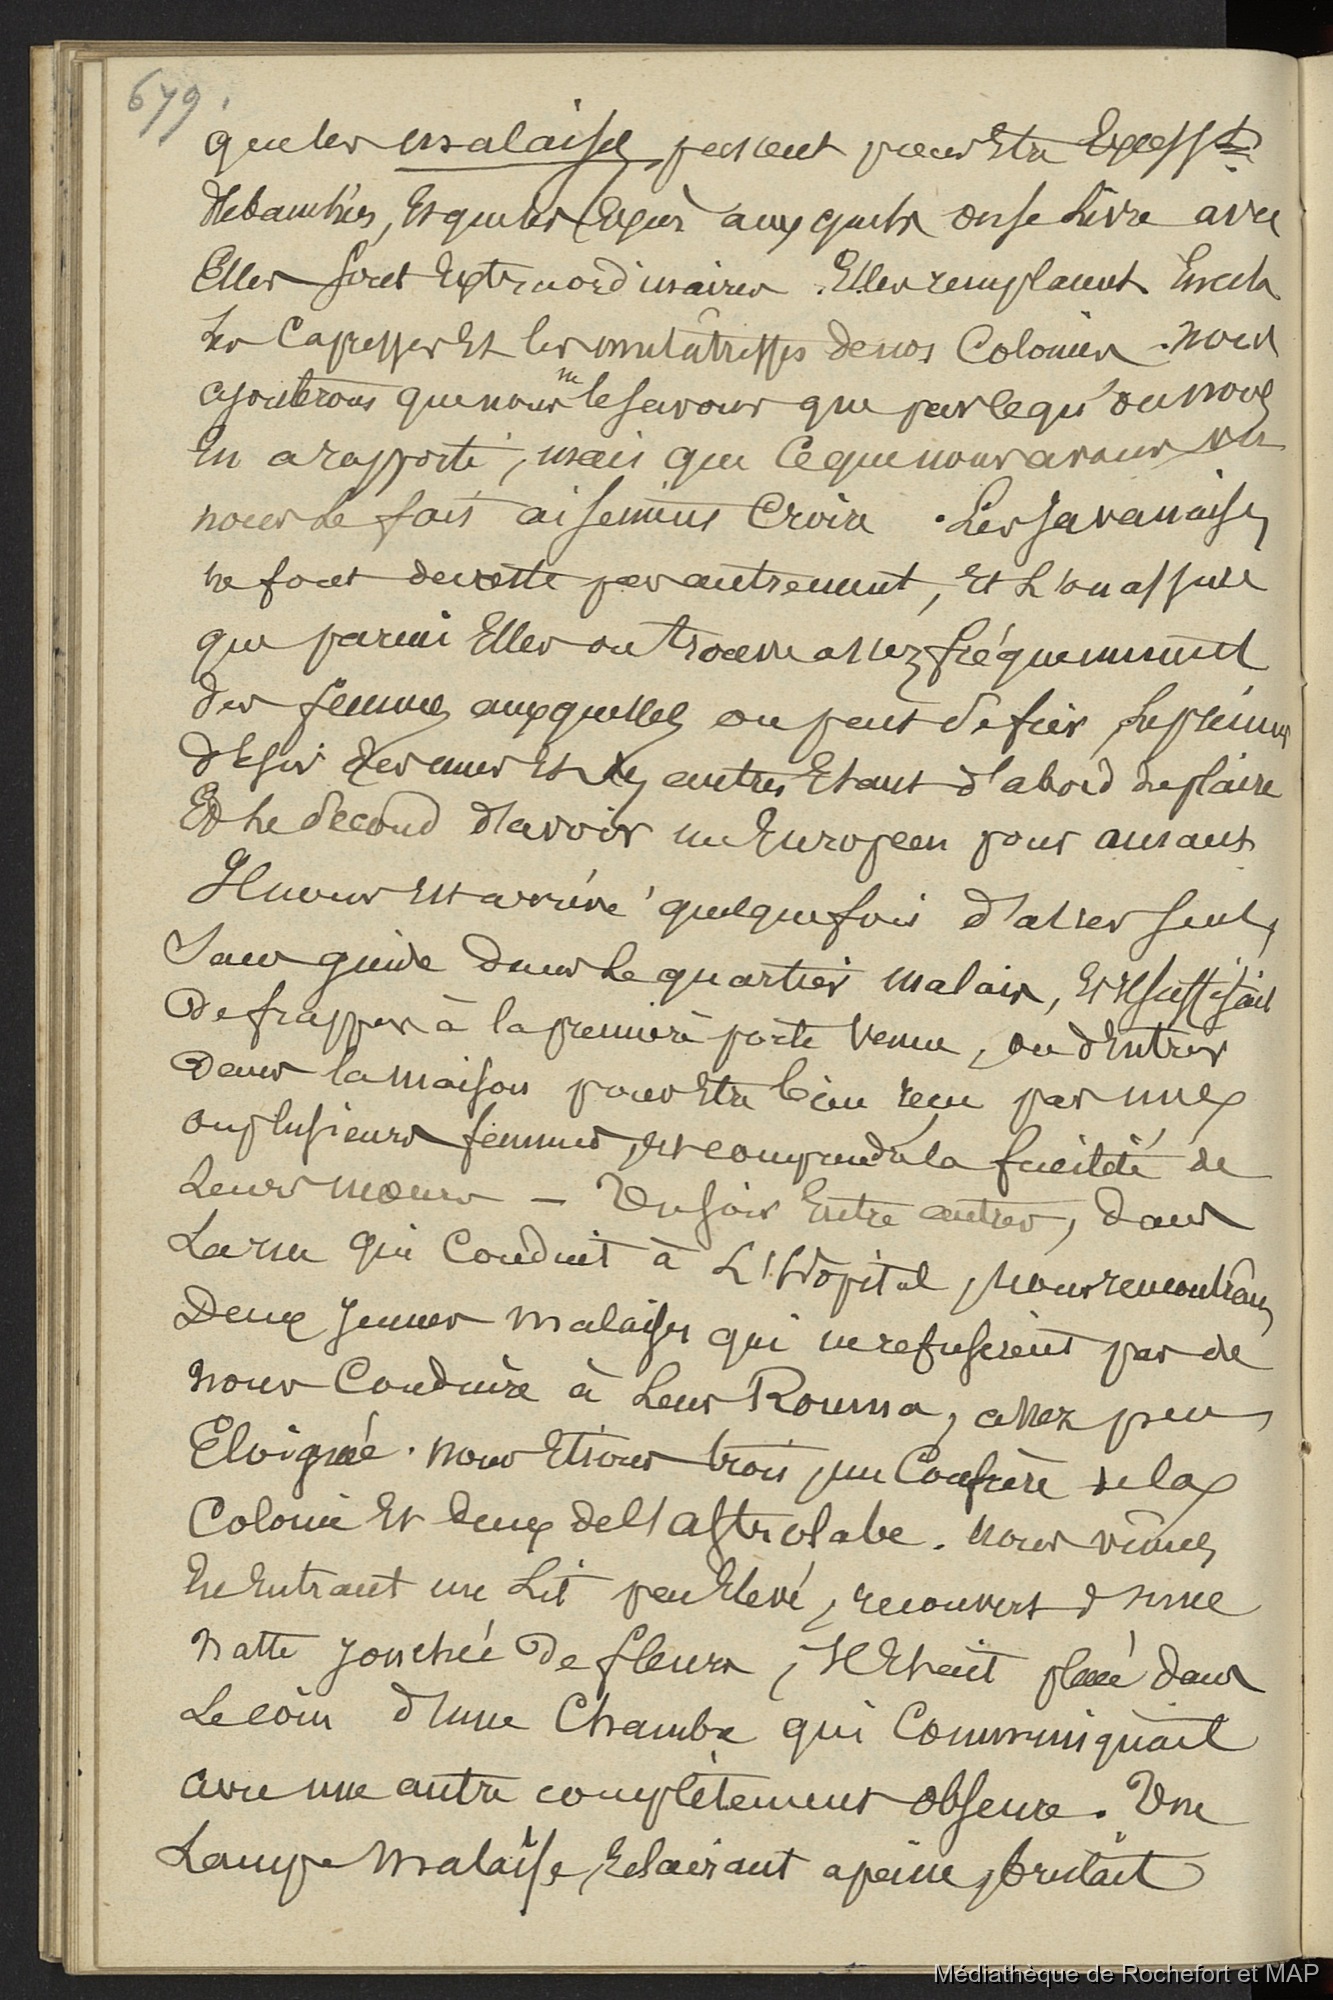 679.
que les malaises passent pour être excessivt
débauchées, et que les excès auxquels on se livre avec
Elles sont extraordinaires. Elles remplacent en cela
les Capresses et les mulâtresses de nos Colonies. nous
ajouterons que nous ne le savons que par le qu'on nous
En a rapporté, mais que ce que nous avons vu
nous le fait aisement croire. Les Javanaises
ne font du reste pas autrement, et l'on assure
que parmi Elles on trouve assez fréquemment
des femmes auxquelles on peut se fier, le premier
désir des unes et des autres étant d'abord de plaire
Et le second d'avoir un Européen pour amant
Il nous est arrivé quelquefois d'aller seul,
sans guide dans le quartier malais, et il suffisait
De frapper à la première porte venue, ou d'entrer
Dans la maison pour être bien reçu par une
ou plusieurs femmes, et comprendre la facilité de
Leurs mœurs — Un soir Entre autres, dans
La rue qui Conduit à L'Hopital, nous rencontrâmes
Deux jeunes malaises qui ne refusèrent pas de
nous Conduire à Leur Rouma, assez peu
Eloignée. nous Etions trois, un Confrère de la
Colonie et deux de l'astrolabe. nous vîmes
En Entrant un Lit peu Elevé, recouvert d'une
natte jonchée De fleurs, il Etait placé dans
Le coin d'une Chambre qui Communiquait
avec une autre complètement obscure. Une
Lampe malaise, Eclairant apeine, brulait
Médiathèque de Rochefort et MAP